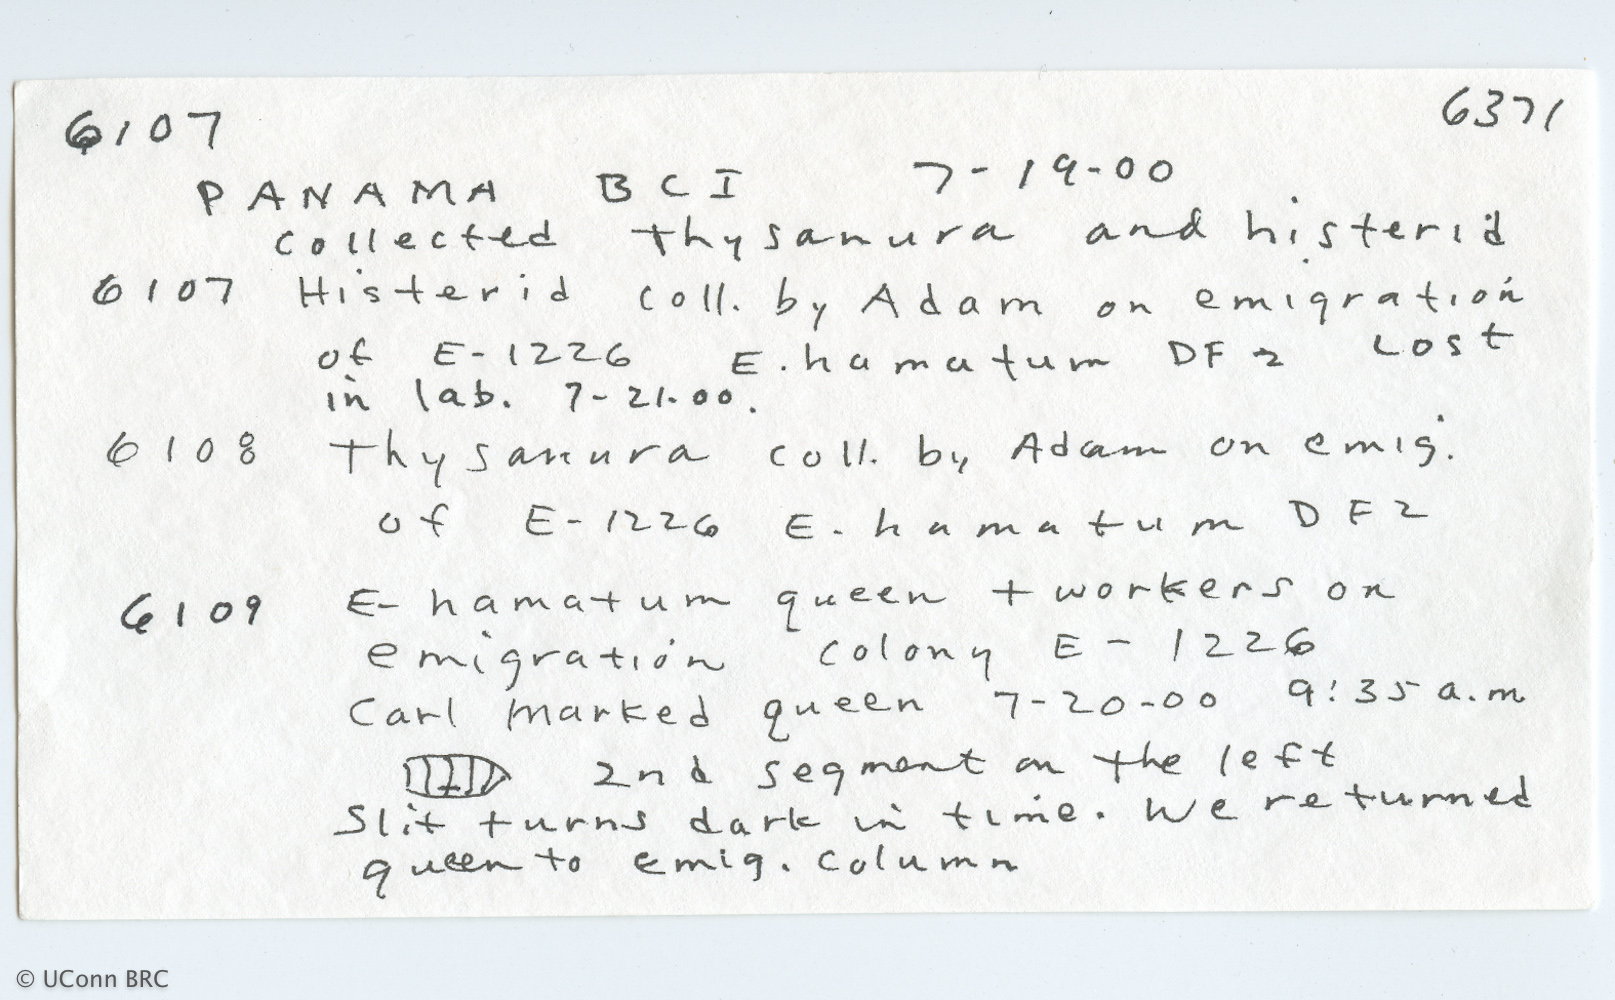 6107
6371
PANAMA BCI 7-19-00
collected Thysanura and histerid
6107 Histerid coll. by Adam on emigration
of E-1226 E. hamatum DF2 Lost
in lab. 7-21-00.
6108 Thysanura coll. by Adam on emig.
of E-1226 E. hamatum DF2
6109 E- hamatum queen + workers on
emigration colony E-1226
Carl marked queen 7-20-00 9:35 a.m
2nd segment on the left
Slit turns dark in time. We returned
queen to emig. column
© UConn BRC